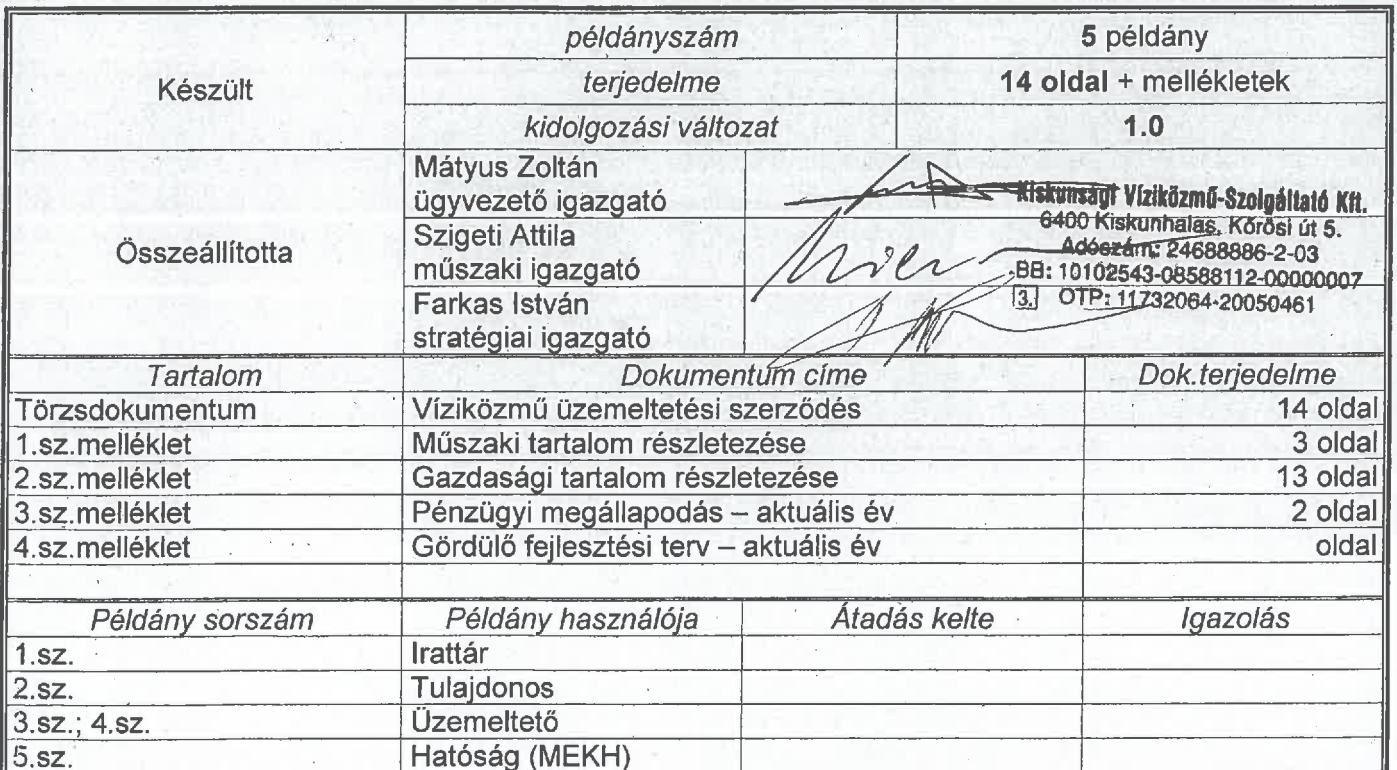 Készült
példányszám 5 példány
terjedelme 14 oldal + mellékletek
kidolgozási változat 1.0
Összeállította
Mátyus Zoltán
ügyvezető igazgató
Szigeti Attila
műszaki igazgató
Farkas István
stratégiai igazgató
Kiskunsági Víziközmű-Szolgáltató Kft.
6400 Kiskunhalas, Kőrösi út 5.
Adószám: 24688886-2-03
BB: 10102543-08588112-00000007
3. OTP: 11732064-20050461
Tartalom Dokumentum címe Dok.terjedelme
Törzsdokumentum Víziközmű üzemeltetési szerződés 14 oldal
1.sz.melléklet Műszaki tartalom részletezése 3 oldal
2.sz.melléklet Gazdasági tartalom részletezése 13 oldal
3.sz.melléklet Pénzügyi megállapodás – aktuális év 2 oldal
4.sz.melléklet Gördülő fejlesztési terv – aktuális év oldal
Példány sorszám Példány használója Átadás kelte Igazolás
1.sz. Irattár
2.sz. Tulajdonos
3.sz.; 4.sz. Üzemeltető
5.sz. Hatóság (MEKH)